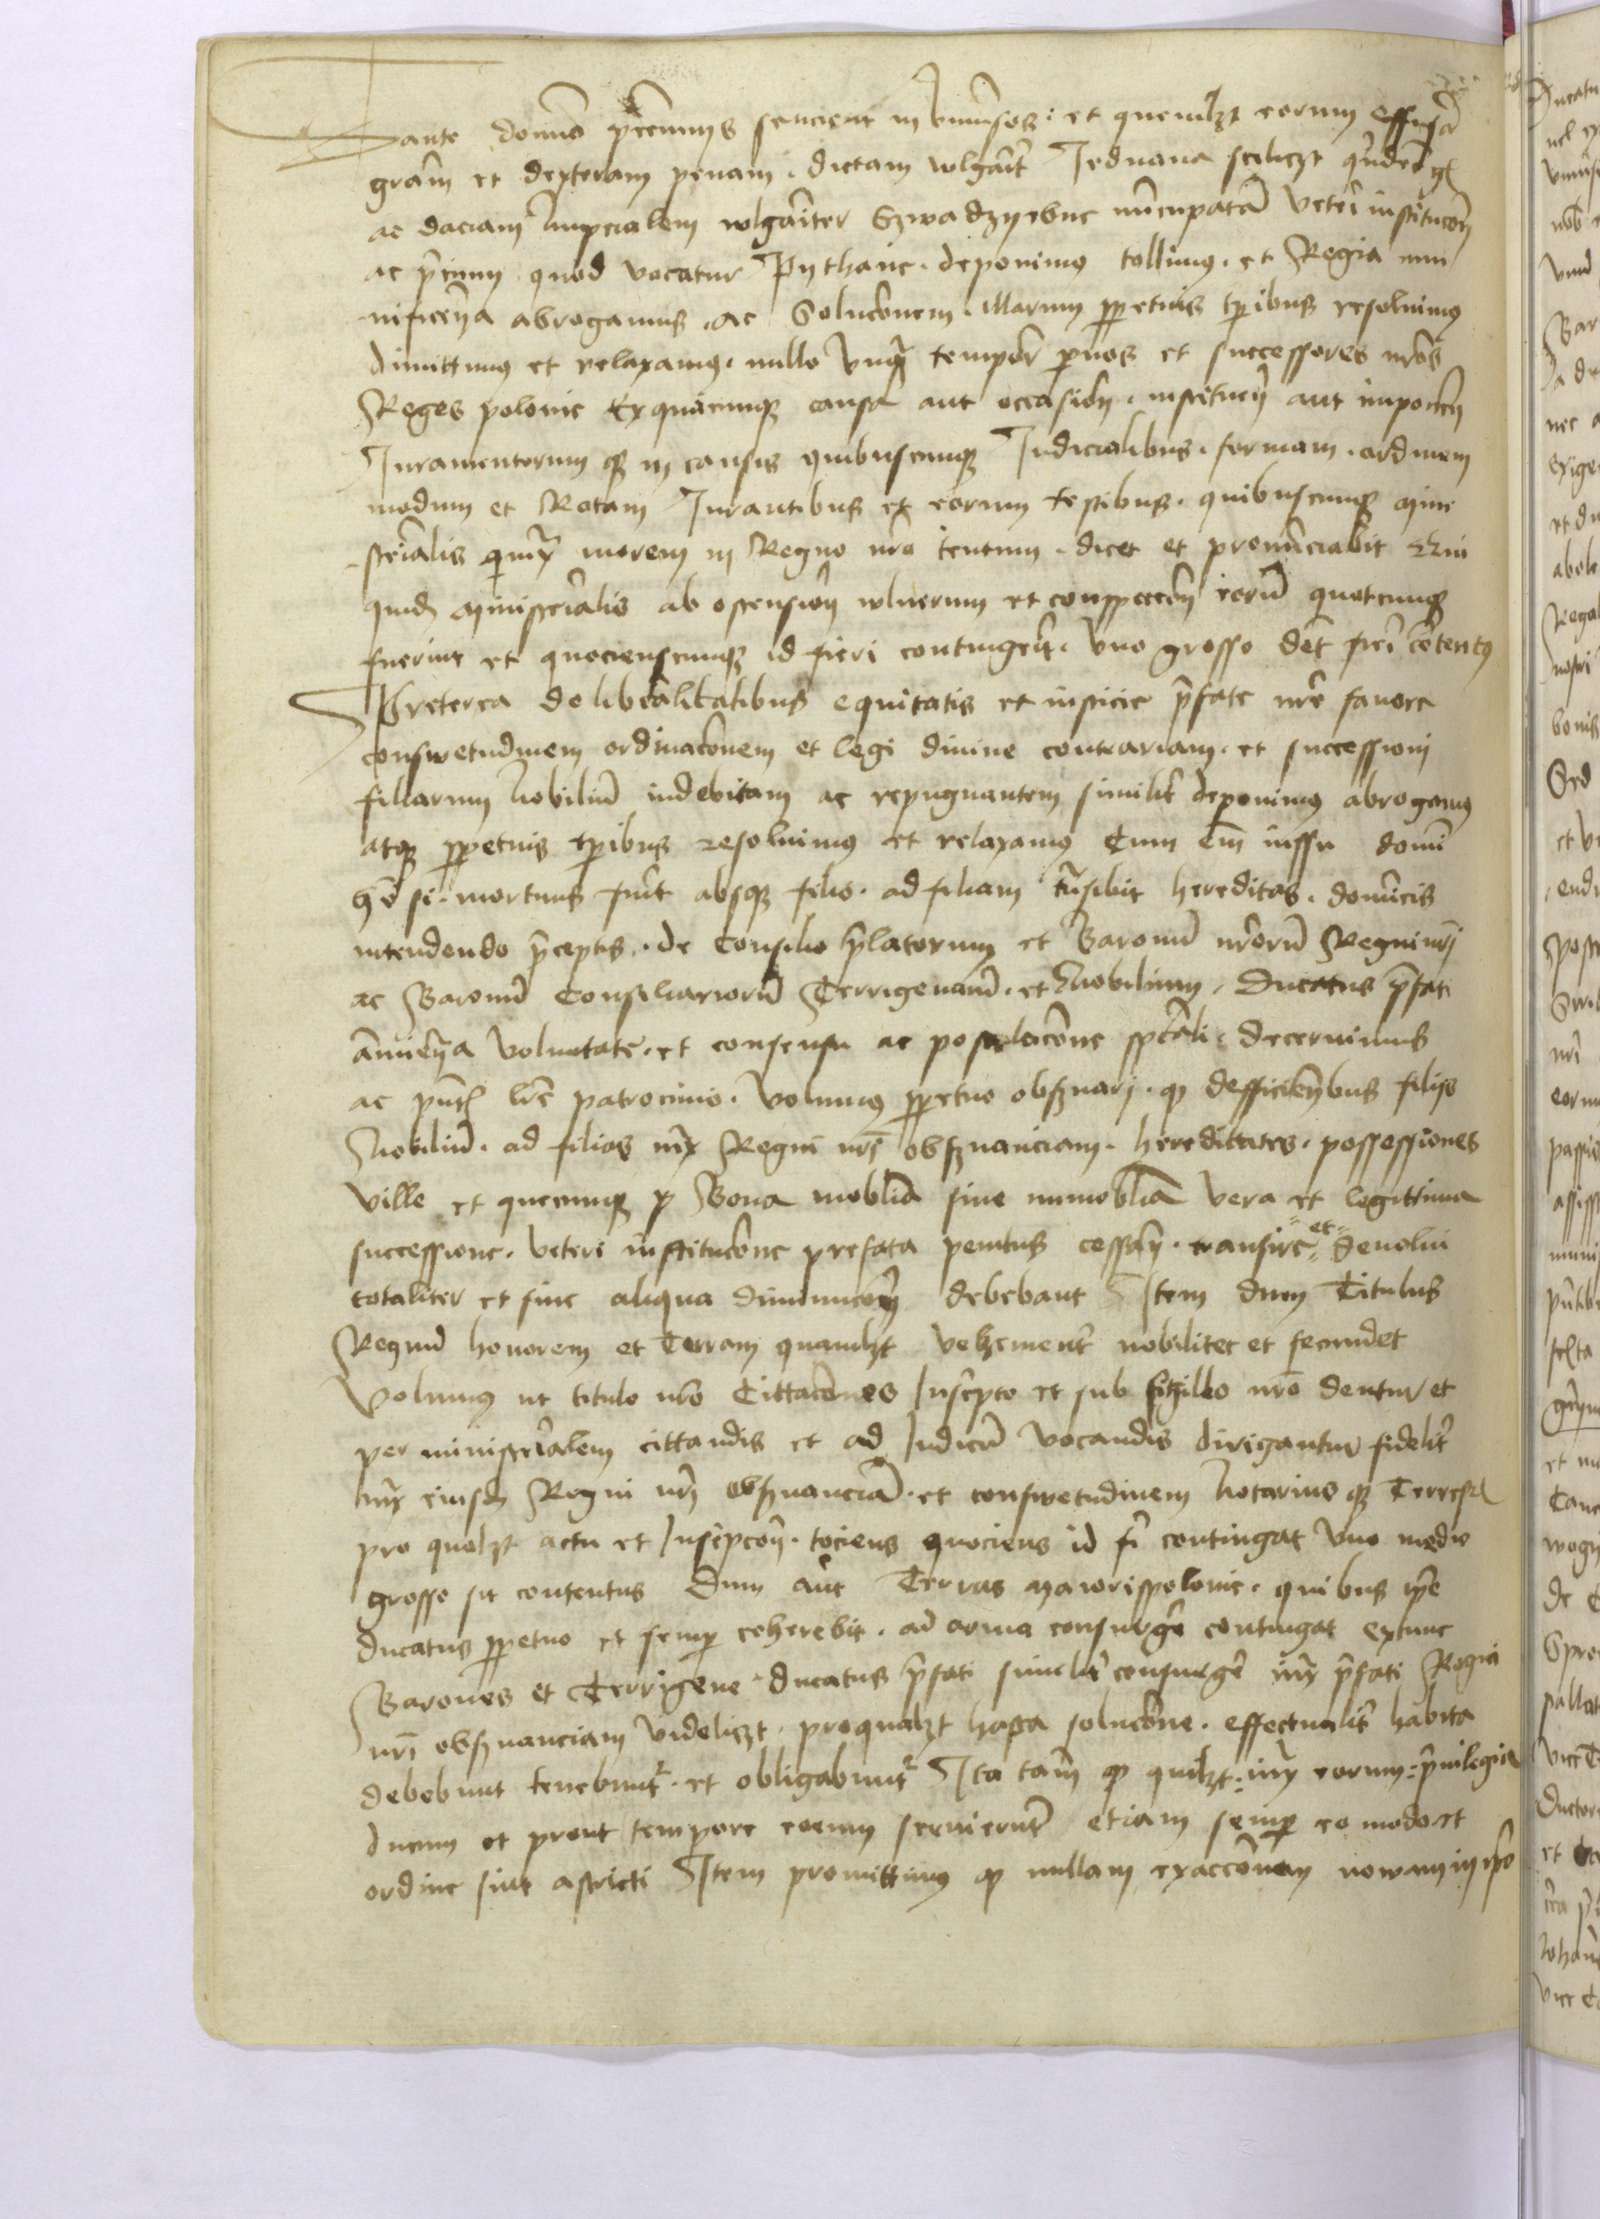 Dante domino perennis senciant in vniuersos et quemlibet eorum effusa
gram et dexteram penam dictam wlgarit Jednana scilicet
ac daciam Imperialem wlgariter Szwadzyebne nuncupatam veteri institucon
ac precium quod vocatur Pythane deponimus tollimus et Regia mu
nificencia abrogamus ac Solucionem illarum perpetuis temporibus resoluimus
dimittimus et relaxamus nullo vnquam tempore per nos et successores nros
Reges polonie Exquacumque causa aut occasion instituen aut imponen
Juramentorum que in causis quibuscumque Judicialibus formam ordinem
modum et Rotam Jurantibus et eorum testibus quibuscumque mini
sterialis iuxta morem in Regno nro tentum dicet et pronunciabit Qui
quidem ministerialis ab ostension wlnerum et conspeccon eorum quotcumque
fuerint et quocienscumque id fieri contingerit vno grosso debet fieri contentus
Preterea de liberalitatibus equitatis et iusticie prefate nre fauore
conswetudinem ordinaconem et legi diuine contrariam et successioni
filiarum Nobilium indebitam ac repugnantem similit deponimus abrogamus
atque perpetuis temporibus resoluimus et relaxamus Cum enim iussu domini
homo si mortuus fuerit absque filio ad filiam transibit hereditas dominicis
intendendo preceptis de Consilio prelatorum et Baronum nrorum Regni nri
ac Baronum Consiliariorum Terrigenarum et Nobilium Ducatus prefati
annuencia voluntate et consensu ac postulacone speciali decernimus
ac presentis lre patrocinio volumus perpetuo obseruari quod defficientibus filijs
Nobilium ad filias iuxta Regni nri obseruanciam hereditates possessiones
ville et quecumque Bona mobilia siue immobilia vera et legittima
successione veteri institucone prefata penitus cessan transire et deuolui
totaliter et sine aliqua diminucon debebant Item dum Titulus
Regnum honorem et Terram quamlibet vehement nobilitet et fecundet
Volumus ut titulo nro Cittacones Inscripto et sub sigillo nro dentur et
per ministerialem cittandis et ad Judicium vocandis dirigantur fidelit
iuxta eiusdem Regni nri obseruanciam et conswetudinem Notarius que Terrestris
pro quolibet actu et Inscripcon tociens quociens id fieri contingat vno medio
grosso sit contentus Dum aut Terras maiorispolonie quibus ipse
ducatus perpetuo et semper coherebit ad arma consurgere contingat extunc
Barones et Terrigene ducatus prefati similit consurgere iuxta prefati Regni
nri obseruanciam videlicet proqualibet hasta solucone effectualit habita
debebunt tenebunt et obligabunt Ita tam quod quilibet iuxta eorum priuilegia
ducum et prout tempore eorum seruierunt etiam semper eo modo et
ordine sint astricti Item promittimus quod nullam exacconem nowam in ipso